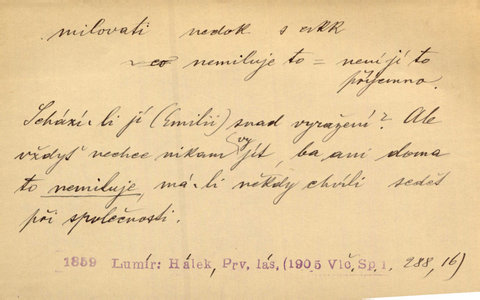 milovati nedok s akk
~ co nemiluje to = není jí to
příjemno.
Schází-li jí (Emilii) snad vyražení? Ale
vždyť nechce nikam vyjít, ba ani doma
to nemiluje, má-li někdy chvíli sedět
při společnosti.
1859 Lumír: Hálek, Prv. lás, (1905 Vlč, Sp 1, 288, 16)